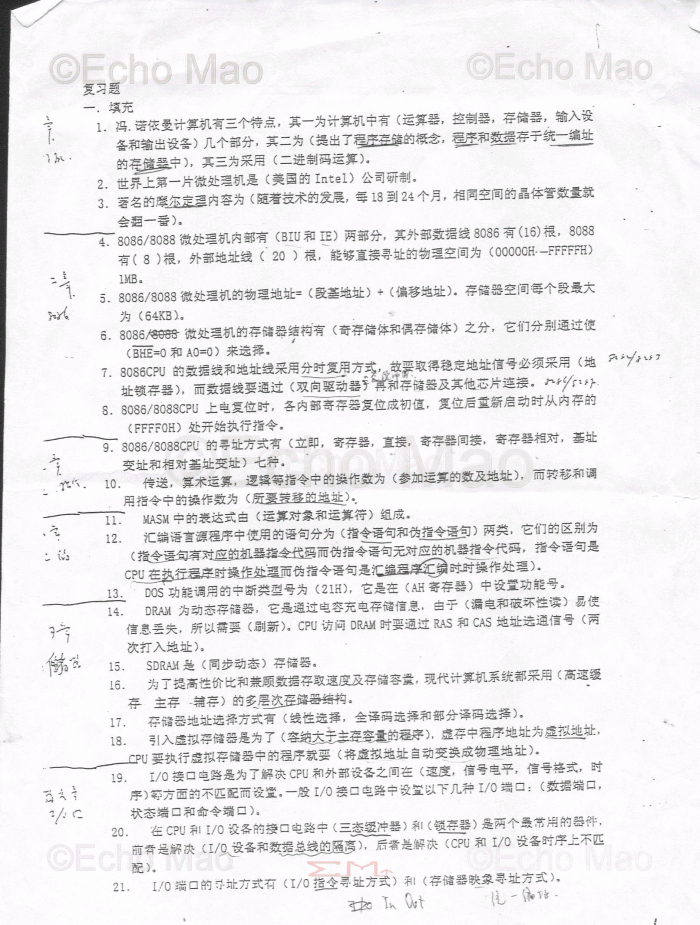 ©Echo Mao ©Echo Mao
复习题
一．填充
1．冯.诺依曼计算机有三个特点，其一为计算机中有（运算器，控制器，存储器，输入设
备和输出设备）几个部分，其二为（提出了程序存储的概念，程序和数据存于统一编址
的存储器中），其三为采用（二进制码运算）。
2．世界上第一片微处理机是（美国的 Intel）公司研制。
3．著名的摩尔定理内容为（随着技术的发展，每 18 到 24 个月，相同空间的晶体管数量就
会翻一番）。
4．8086/8088 微处理机内部有（BIU 和 IE）两部分，其外部数据线 8086 有(16)根，8088
有( 8 )根，外部地址线（ 20 ）根，能够直接寻址的物理空间为（00000H--FFFFFH）
1MB。
二章
8086
5．8086/8088 微处理机的物理地址=（段基地址）+（偏移地址）。存储器空间每个段最大
为（64KB）。
6．8086/8088 微处理机的存储器结构有（奇存储体和偶存储体）之分，它们分别通过使
（BHE=0 和 A0=0）来选择。
7．8086CPU 的数据线和地址线采用分时复用方式，故要取得稳定地址信号必须采用（地
址锁存器），而数据线要通过（双向驱动器）再和存储器及其他芯片连接。
8．8086/8088CPU 上电复位时，各内部寄存器复位成初值，复位后重新启动时从内存的
（FFFF0H）处开始执行指令。
9．8086/8088CPU 的寻址方式有（立即，寄存器，直接，寄存器间接，寄存器相对，基址
变址和相对基址变址）七种。
10． 传送，算术运算，逻辑等指令中的操作数为（参加运算的数及地址），而转移和调
用指令中的操作数为（所要转移的地址）。
©Echo Mao
11． MASM 中的表达式由（运算对象和运算符）组成。
12． 汇编语言源程序中使用的语句分为（指令语句和伪指令语句）两类，它们的区别为
（指令语句有对应的机器指令代码而伪指令语句无对应的机器指令代码，指令语句是
CPU 在执行程序时操作处理而伪指令语句是汇编程序汇编时时操作处理）。
13． DOS 功能调用的中断类型号为（21H），它是在（AH 寄存器）中设置功能号。
14． DRAM 为动态存储器，它是通过电容充电存储信息，由于（漏电和破坏性读）易使
信息丢失，所以需要（刷新）。CPU 访问 DRAM 时要通过 RAS 和 CAS 地址选通信号（两
次打入地址）。
15． SDRAM 是（同步动态）存储器。
16． 为了提高性价比和兼顾数据存取速度及存储容量，现代计算机系统都采用（高速缓
存 主存 辅存）的多层次存储器结构。
17． 存储器地址选择方式有（线性选择，全译码选择和部分译码选择）。
18． 引入虚拟存储器是为了（容纳大于主存容量的程序），虚存中程序地址为虚拟地址，
CPU 要执行虚拟存储器中的程序就要（将虚拟地址自动变换成物理地址）。
19． I/O 接口电路是为了解决 CPU 和外部设备之间在（速度，信号电平，信号格式，时
序）等方面的不匹配而设置。一般 I/O 接口电路中设置以下几种 I/O 端口：（数据端口，
状态端口和命令端口）。
20． 在 CPU 和 I/O 设备的接口电路中（三态缓冲器）和（锁存器）是两个最常用的器件，
前者是解决（I/O 设备和数据总线的隔离），后者是解决（CPU 和 I/O 设备时序上不匹
配）。
©Echo Mao ©Echo Mao
21． I/O 端口的寻址方式有（I/O 指令寻址方式）和（存储器映象寻址方式）。
In Out 统一编址